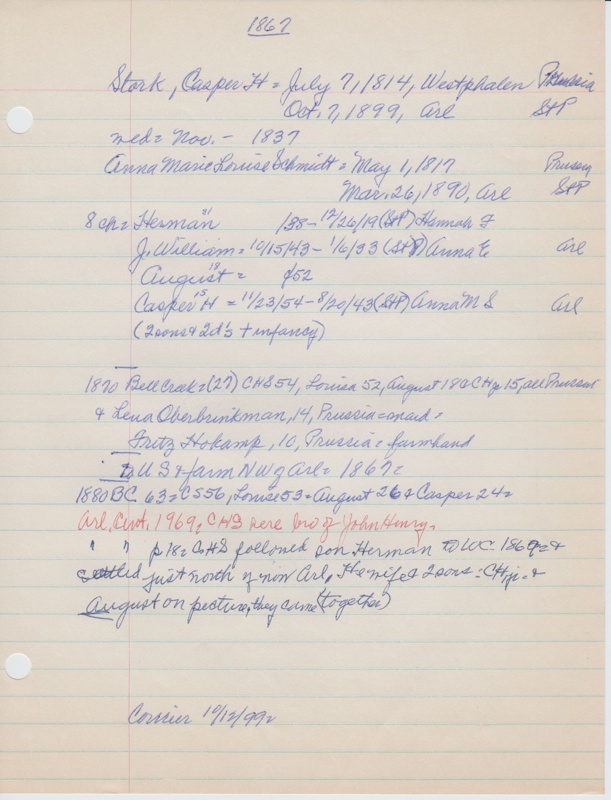 1867
Stork, Casper H = July 7, 1814, Westphalen Prussia
Oct. 7, 1899, Arl St P
med = Nov. - 1837
Anna Marie Louise Schmidt = May 1, 1817 Prussia
Mar. 26, 1890, Arl St P
8 ch = Herman 21 /38 - 12/26/19 (St P) Hannah F
J. William = 10/15/43 - 1/6/33 (St P) Anna E. Arl
August 18 = /52
Casper H 15 = 11/23/54 - 8/20/43 (St P) Anna M S Arl
(2 sons & 2 d's + infancy)
1870 Bell Creek = (27) CHS 54, Louisa 52, August 18 & CH jr 15, all Prussia
& Lena Oberbrinkman, 14, Prussia = maid =
Fritz Hokamp, 10, Prussia = farmhand
to U S & farm NW of Arl = 1867 =
1880 BC 63 = C S 56, Louise 53 = August 26 & Casper 24 =
Arl. Cent. 1969 = CHS were bro of John Henry.
" " p 18 = CHS followed son Herman to WC 1869 = &
settled just north of now Arl, He wife & 2 sons = CH jr = &
August on picture, they came (together)
Courier 10/12/99 =